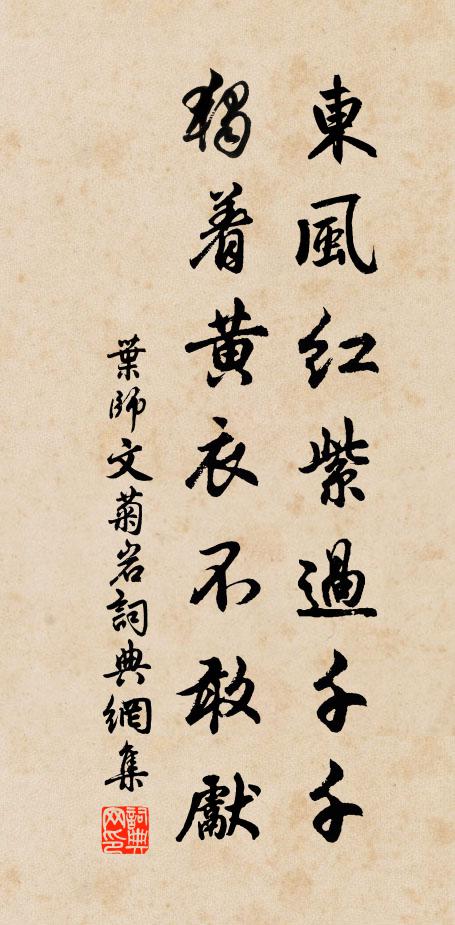 東風紅紫過千千
獨着黃衣不敢獻
葉師文菊岩詞典網集
詞典网印